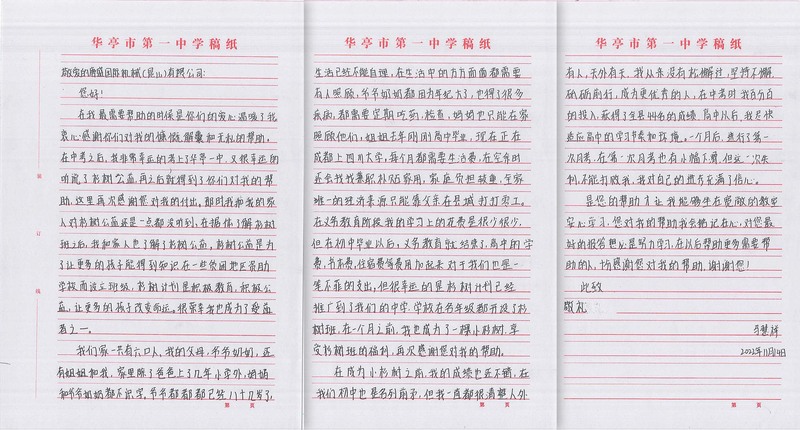 华亭市第一中学稿纸
敬爱的 国际机械(昆山)有限公司:
您好!
在我最需要帮助的时候是你们的爱心温暖了我
衷心感谢你们对我的慷慨解囊和无私的帮助。
在中考之后,我非常幸运的考上了华亭一中,又很幸运的
听说了杉树公益,再之后就得到了你们对我的帮
助,这里再次感谢您对我的付出,那时我和我的家
人对杉树公益还是一点都没听到,在据你了解杉树
班之后,我和家人也了解了杉树公益,杉树公益是为
了让更多的孩子能得到知识在一些贫困地区资助
学校而设立班级,杉树计划是积极教育,积极公
益,让更多的孩子改变命运。很荣幸我也成为了受益
者之一。
我们家一共有六口人,我的父母,爷爷奶奶,还
有姐姐和我,家里除了爸爸上了几年小学外,妈妈
和爷爷奶奶都不识字。爷爷都都都已经八十几岁了,
装 订 线
第 页
华亭市第一中学稿纸
生活已经不能自理,在生活中的方方面面都需要
有人照顾,爷爷奶奶都因为年纪大了,也得了很多
疾病,都需要定期吃药,检查,妈妈也只能在家
照顾他们,姐姐去年刚刚高中毕业,现在正在
成都上四川大学,每个月都需要生活费,在空余时
还会找找兼职补贴家用,家庭负担较重,全家
唯一的经济来源只能靠父亲在县城打打零工。
在义务教育阶段我的学习上的花费是很少很少,
但在初中毕业以后,义务教育就结束了,高中的学
费,书本费,住宿费等费用加起来对于我们也是一
笔不菲的支出,但很幸运的是杉树计划已经
推广到了我们的中学,学校在各年级都开设了杉
树班,在一个月之前,我也成为了一棵小杉树,享
受杉树班的福利,再次感谢您对我的帮助。
在成为小杉树之前,我的成绩也还不错,在
我们初中也是名列前茅,但我一直都很清楚人外
第 页
华亭市第一中学稿纸
有人,天外有天,我从来没有松懈过,坚持不懈,
砥砺前行,成为更优秀的人,在中考时我百分百
的投入,获得了全县44名的成绩,高中以后,我尽快
适应高中的学习节奏和环境。一个月后,进行了第一
次月考,在第一次月考也有小幅下降,但这一次失
利,不能打败我,我对自己的进步充满了信心。
是您的帮助才让我能够坐在宽敞的教室
安心学习,您对我的帮助我会铭记在心,对您最
好的报答想必是努力学习,在以后帮助更多需要帮
助的人,  感谢您对我的帮助,谢谢您!
此致
敬礼
慧祥
2022年11月14日
第 页